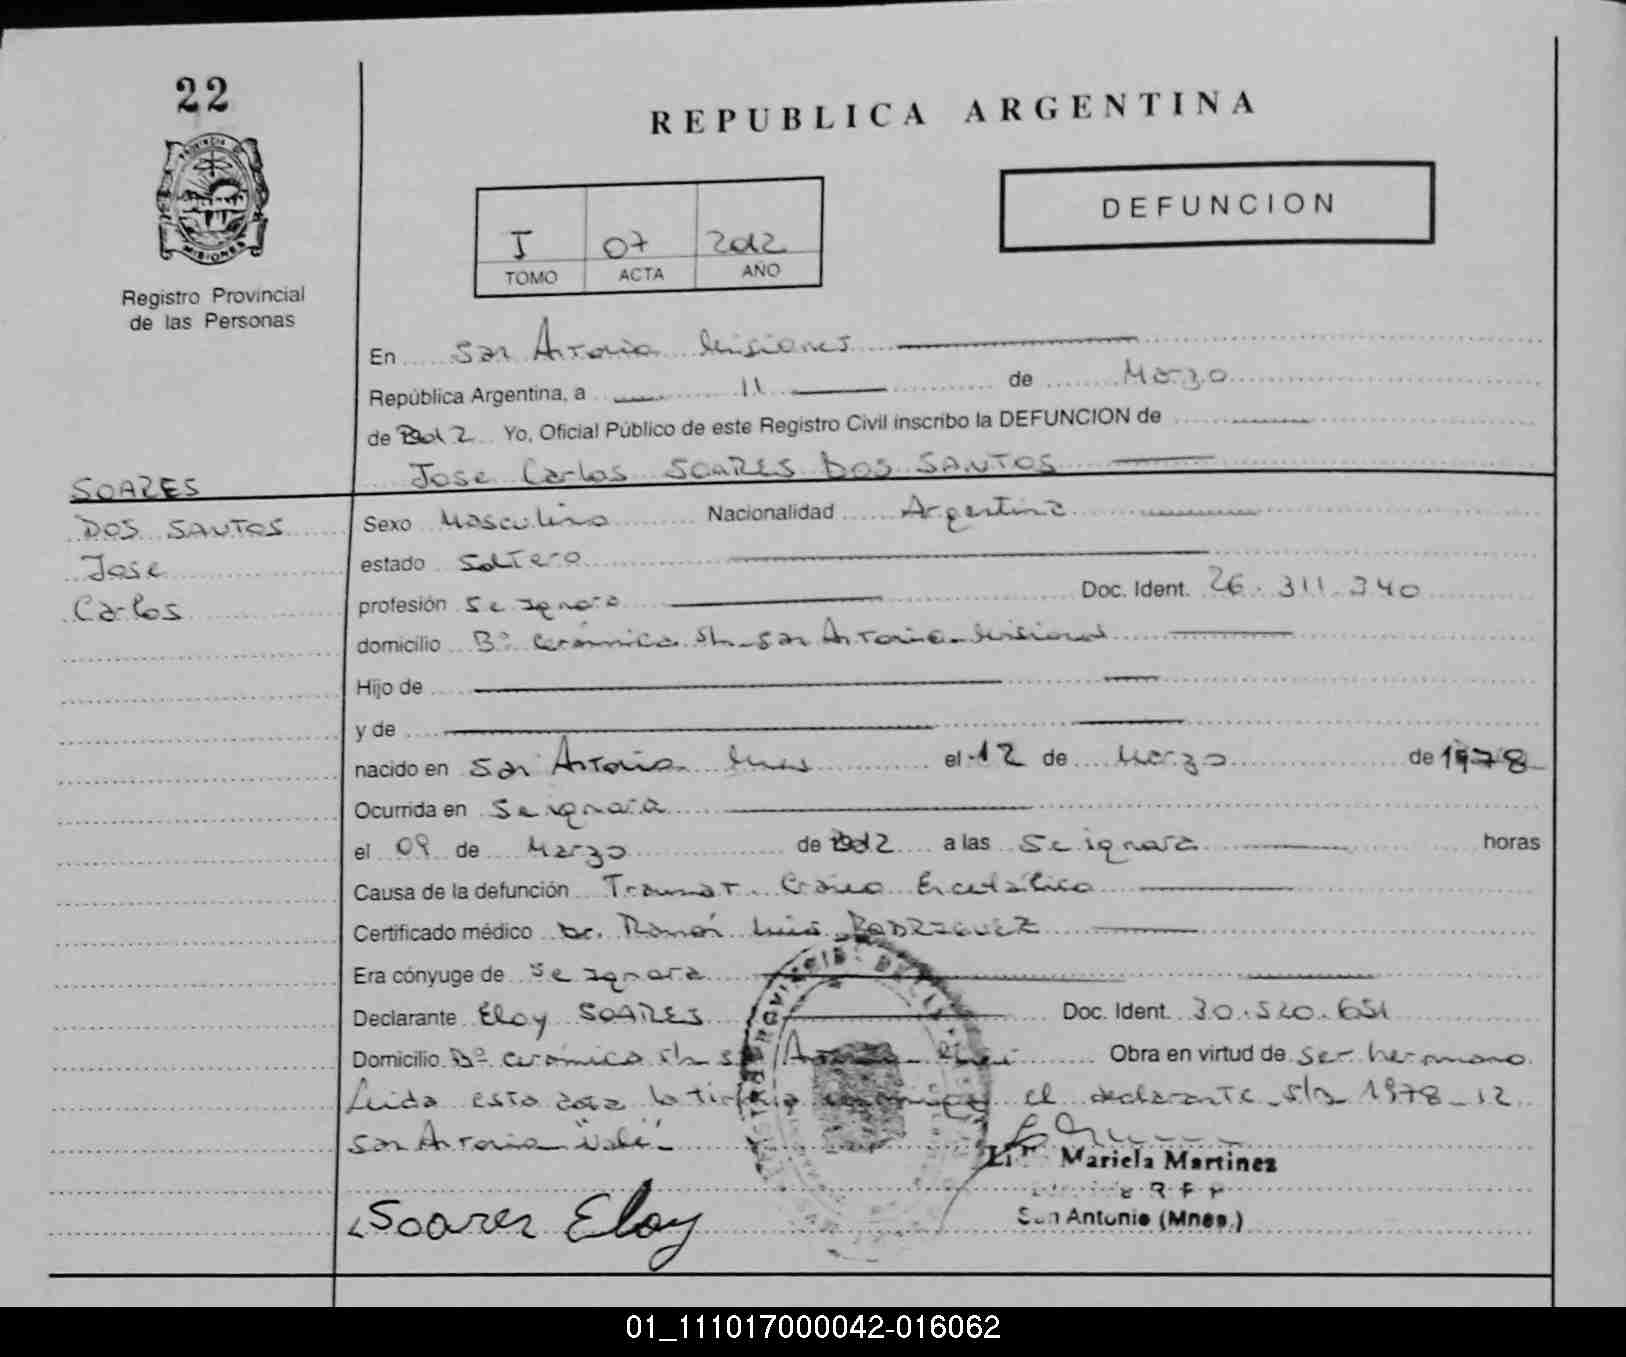 22
REPUBLICA ARGENTINA
PROVINCIA DE
MISIONES
Registro Provincial
de las Personas
I 07 2012
TOMO ACTA AÑO
DEFUNCION
En San Antonio Misiones
República Argentina, a 11 de Marzo
de 2012 Yo, Oficial Público de este Registro Civil inscribo la DEFUNCION de
Jose Carlos SOARES DOS SANTOS
SOARES
DOS SANTOS
Jose
Carlos
Sexo Masculino Nacionalidad Argentina
estado Soltero
profesión Se ignora Doc. Ident. 26.311.340
domicilio Bº Cerámica s/n San Antonio Misiones
Hijo de
y de
nacido en San Antonio Mnes el 12 de Marzo de 1978
Ocurrida en Se ignora
el 09 de Marzo de 2012 a las Se ignora horas
Causa de la defunción Traumat. Craneo Encefalico
Certificado médico Dr. Ramón Luis RODRIGUEZ
Era cónyuge de Se ignora
Declarante Eloy SOARES Doc. Ident. 30.520.651
Domicilio Bº Cerámica s/n San Antonio Mnes Obra en virtud de ser hermano
Leida esta acta la el declarante s/b 1978 12
San Antonio "Vale"
Soares Eloy
Lic. Mariela Martinez
R P P
San Antonio (Mnes.)
01_111017000042-016062